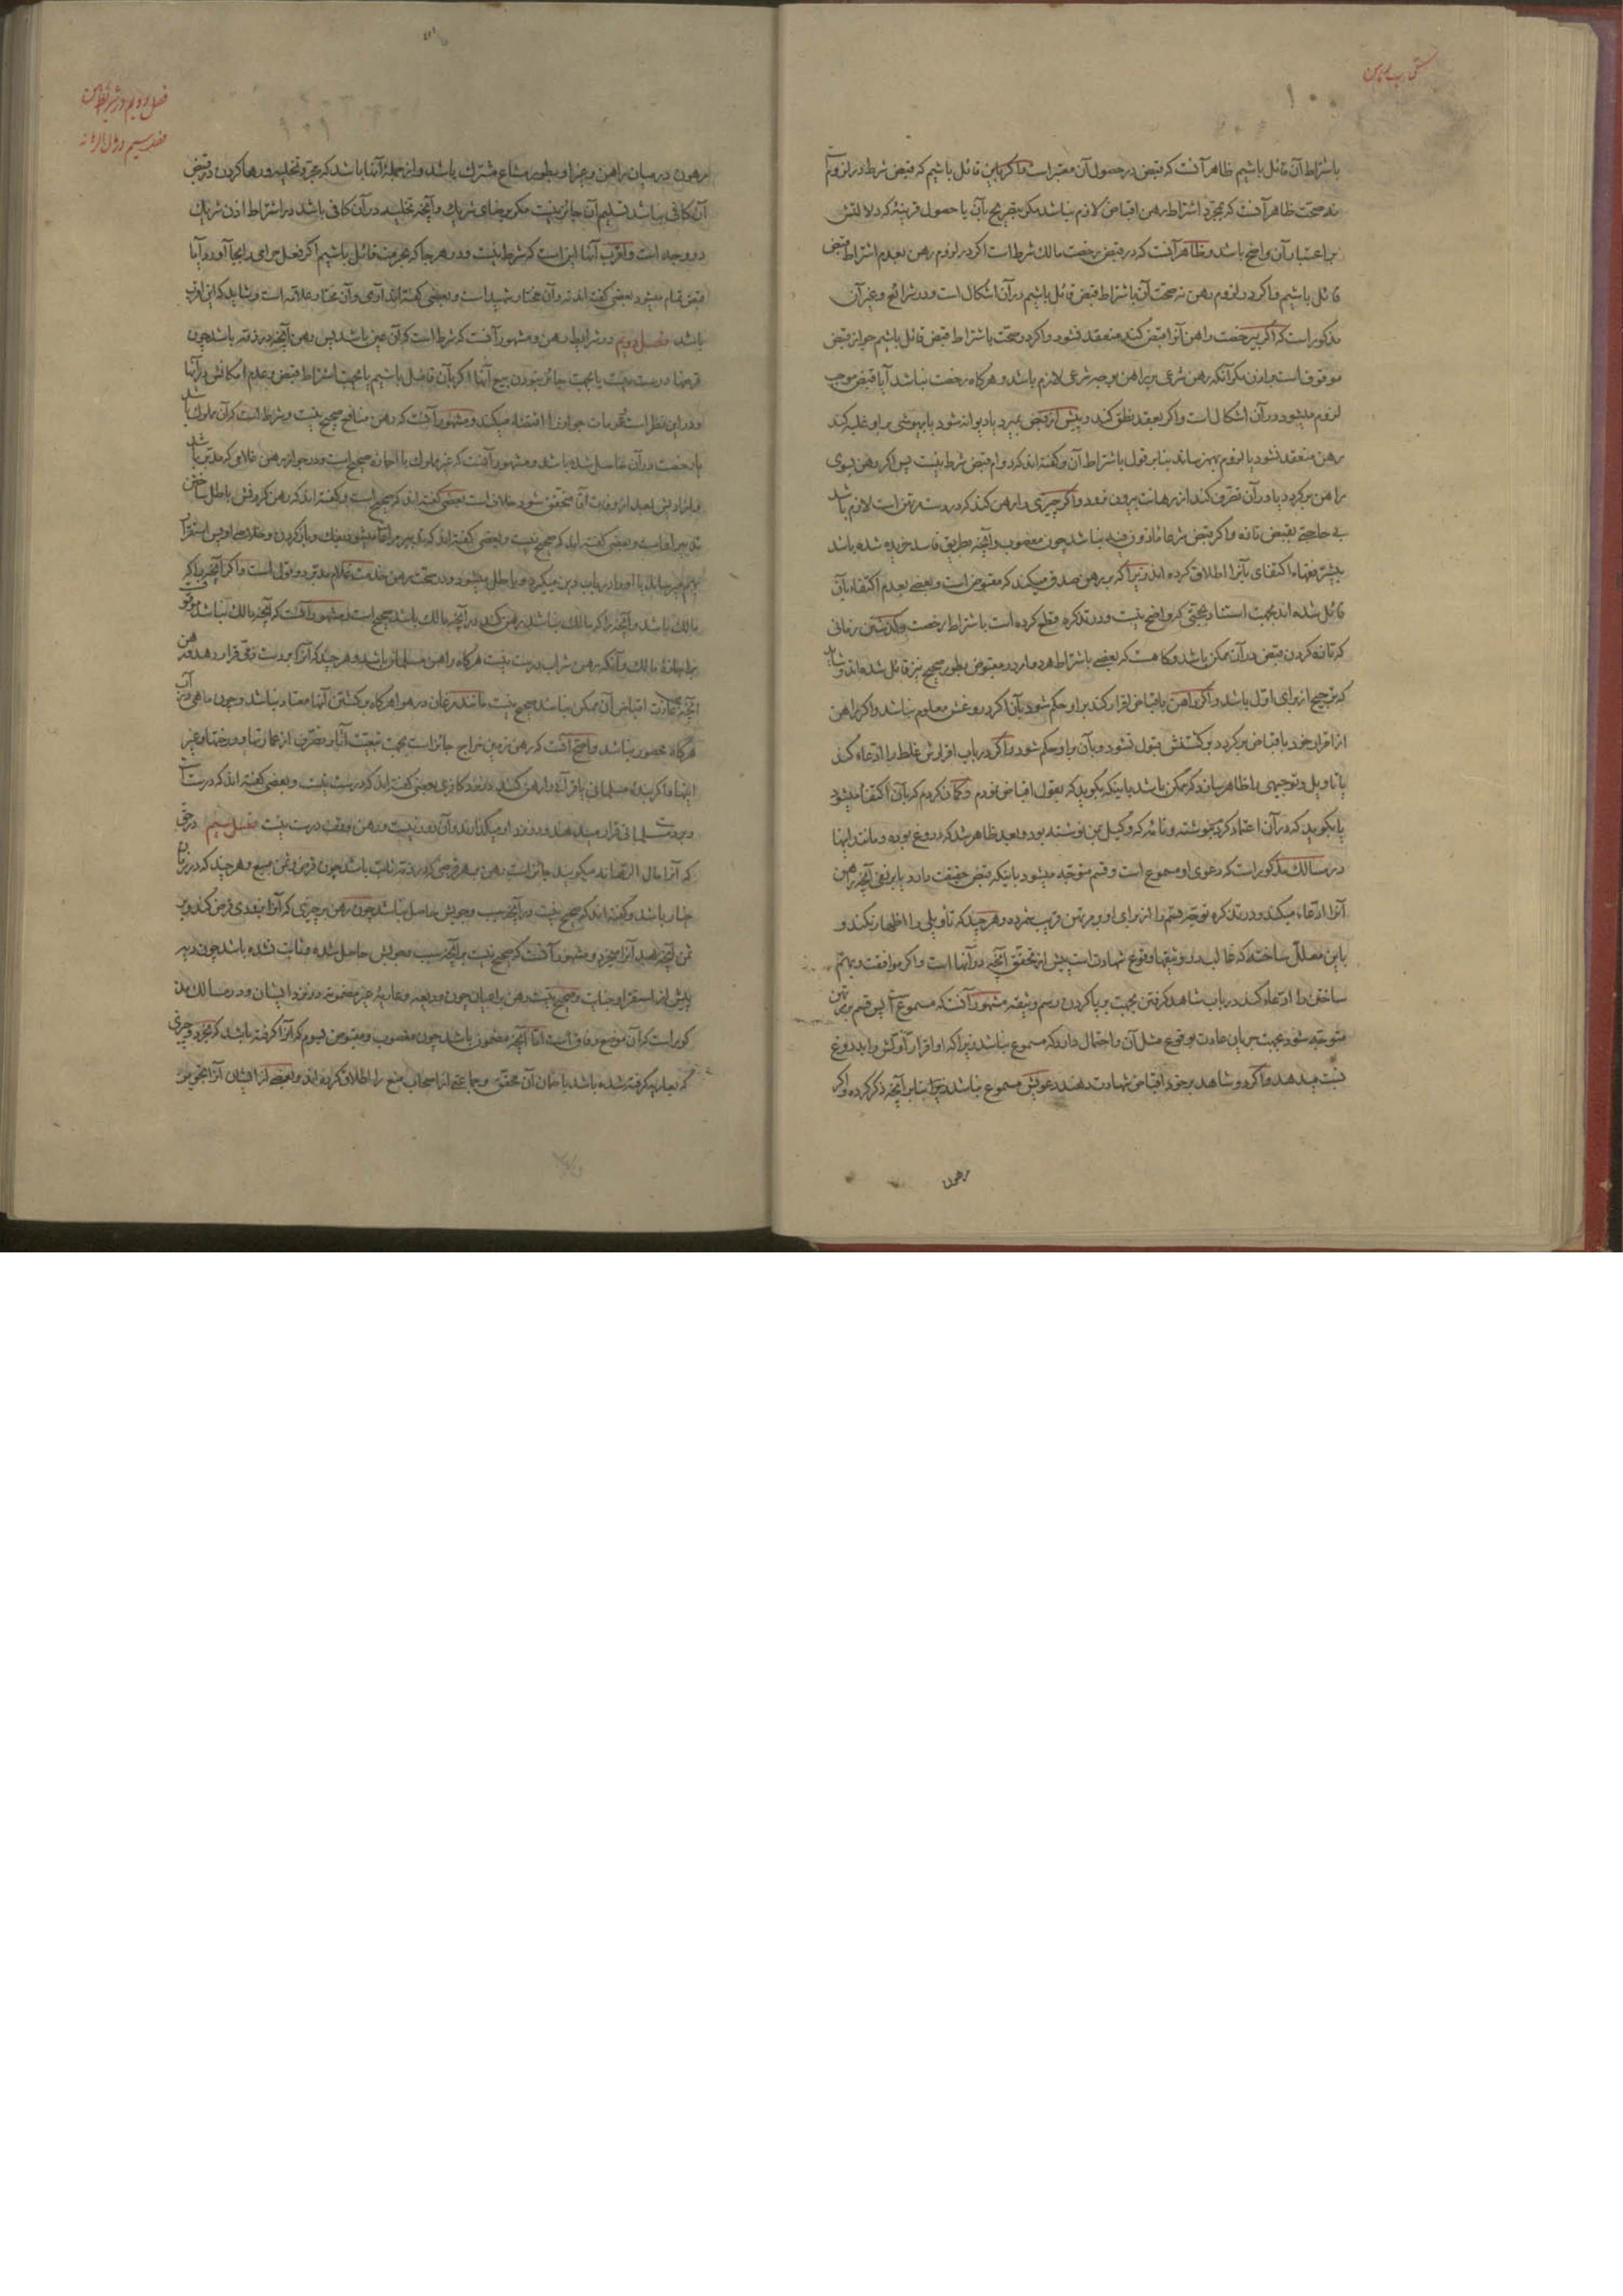 کتاب رهن
۱۰۰
باشتراط آن قائل باشیم ظاهر آنست که قبض در حصول آن معتبر است و اگر باین قائل باشیم که قبض شرط در لزوم است
نه صحت ظاهر آنست که بمجرد اشتراط رهن اقباض لازم نباشد مگر بتصریح بآن یا حصول قرینهٔ که دلالتش
بر اعتبار آن واضح باشد و ظاهر آنست که در قبض رخصت مالک شرط است اگر در لزوم رهن بعدم اشتراط قبض
قائل باشیم و اگر در لزوم رهن نه صحت آن باشتراط قبض قائل باشیم در آن اشکال است و در شرائع و غیر آن
مذکور است که اگر بیرخصت راهن آنرا قبض کند منعقد نشود و اگر در صحت باشتراط قبض قائل باشیم جواز قبض
موقوف است باذن مگر آنکه رهن شرعی بر راهن بوجه شرعی لازم باشد و هرگاه رخصت نباشد آیا قبض موجب
لزوم میشود در آن اشکال است و اگر بعقد نطق کند و پیش از قبض بمیرد یا دیوانه شود یا بیهوشی بر او غلبه کند
رهن منعقد نشود یا لزوم بهم نرساند بنا بر قول باشتراط آن و گفته‌اند که دوام قبض شرط نیست پس اگر رهن بسوی
راهن برگردد یا در آن تصرف کند از رهانت بیرون نرود و اگر چیزی را رهن کند که در دست مرتهن است لازم باشد
بی حاجتی بقبض تازه و اگر قبض شرعا مأذون فیه نباشد چون مغصوب و آنچه بطریق فاسد خریده شده باشد
بیشتر فقهاء اکتفای بآنرا اطلاق کرده اند زیرا که بر رهن صدق میکند که مقبوض است و بعضی بعدم اکتفاء بآن
قائل شده اند بجهت استناد بحجتی که واضح نیست و در تذکره قطع کرده است باشتراط رخصت و گذشتن زمانی
که تازه کردن قبض در آن ممکن باشد و گاهست که بعضی باشتراط هر دو امر در مقبوض بطور صحیح نیز قائل شده‌اند و شاید
که ترجیح از برای اول باشد و اگر راهن باقباض اقرار کند بر او حکم شود بآن اگر دروغش معلوم نباشد و اگر راهن
از اقرار خود باقباض برگردد برگشتنش قبول نشود و بآن بر او حکم شود و اگر در باب اقرارش غلط را ادعاء کند
یا تاویل و توجیهی را ظاهر سازد که ممکن باشد باینکه بگوید که بقول اقباض نمودم و گمان کردم که بآن اکتفا میشود
یا بگوید که در آن اعتماد کردم بنوشته و نامهٔ که وکیل بمن نوشته بود و بعد ظاهر شد که دروغ بوده و مانند اینها
در مسالک مذکور است که دعوی او مسموع است و قسم متوجه میشود باینکه قبض حقیقت دارد یا بر نفی آنچه راهن
آنرا ادعاء میکند و در تذکره توجه قسم را از برای او بر مرتهن قریب شمرده و هر چند که تأویلی را اظهار نکند و
باین معلل ساخته که غالب در وثیقها وقوع شهادت است پیش از تحقق آنچه در آنها است و اگر موافقت و بهم
ساختن را ادعاء کند در باب شاهد گرفتن بجهت برپا کردن رسم وثیقه مشهور آنست که مسموع است پس قسم بر مرتهن
متوجه شود بجهت جریان عادت بوقوع مثل آن و احتمال دارد که مسموع نباشد زیرا که او اقرار اولش را بدروغ
نسبت میدهد و اگر دو شاهد بر خود اقباض شهادت دهند دعویش مسموع نباشد بنا بر آنچه ذکر کرده و اگر
مرهون
فصل دویم در شرایط رهن
فصل سیم در
۱۰۱
مرهون در میان راهن و غیر او بطور مشاع مشترک باشد و از جملهٔ آنها باشد که مجرد تخلیه و رها کردن در قبض
آن کافی نباشد تسلیم آن جائز نیست مگر برضای شریک و آنچه تخلیه در آن کافی باشد در اشتراط اذن شریک
دو وجه است و اقرب آنها این است که شرط نیست و در هر جا که بحرمت قائل باشیم اگر فعل حرامی را بجا آورد آیا
قبض تمام میشود بعضی گفته اند نه و آن مختار شهید است و بعضی گفته‌اند آری و آن مختار علامه است و شاید که این اقرب
باشد فصل دویم در شرایط رهن و مشهور آنست که شرط است که آن عین باشد پس رهن آنچه در ذمه باشد چون
قرضها درست نیست یا بجهت جائز نبودن بیع آنها اگر بآن قائل باشیم یا بجهت اشتراط قبض و عدم امکانش در آنها
و در این نظر است عمومات جواز را اقتضاء میکند و مشهور آنست که رهن منافع صحیح نیست و شرط است که آن مملوک باشد
یا رخصت در آن حاصل شده باشد و مشهور آنست که غیر مملوک با اجازه صحیح است و در جواز رهن غلامی که مدبر باشد
و آزادیش بعد از وفات آقا متحقق شود خلاف است بعضی گفته اند که صحیح است و گفته اند که رهن کردنش باطل ساختن
تدبیر او است و بعضی گفته اند که صحیح نیست و بعضی گفته اند که تدبیر مراعا میشود بفک و باز کردن و خلاصی او پس استقرار
بهم میرساند یا او را در باب دین میگیرد و باطل میشود و در صحت رهن خدمت غلام مدبر دو قول است و اگر آنچه را که
مالک باشد و آنچه را که مالک نباشد رهن کند در آنچه مالک باشد صحیح است و مشهور آنست که آنچه مالک نباشد موقوف
بر اجازهٔ مالک و آنکه رهن شراب درست نیست هرگاه راهن مسلمان باشد و هر چند که آنرا بدست ذمی قرار دهد و رهن
آنچه بعادت اقباض آن ممکن نباشد صحیح نیست مانند مرغان در هوا هرگاه برگشتن آنها معتاد نباشد و چون ماهی در آب
هرگاه محصور نباشد و اصح آنست که رهن زمین خراج جائز است بجهت تبعیت آثار متصرف از عمارتها و درختها و غیر
اینها و اگر بندهٔ مسلمانی یا قرآنرا رهن کند در نزد کافری بعضی گفته اند که درست نیست و بعضی گفته اند که درست است
در دست مسلمانی قرار میدهند و در نزد او میگذارند و آن دور نیست و رهن وقف درست نیست فصل سیم در حق
که آنرا مال الرهانه میگویند جائز است رهن بر هر قرضی که در ذمه ثابت باشد چون قرض و ثمن مبیع و هر چند که در زمان
خیار باشد و گفته اند که صحیح نیست در آنچه سبب وجوبش حاصل نباشد چون رهن بر چیزی که آنرا بعد قرض کند و بر
ثمن آنچه بعد آنرا میخرد و مشهور آنست که صحیح نیست بر آنچه سبب وجوبش حاصل شده و ثابت نشده باشد چون دیه
پیش از استقرار جنایت و صحیح نیست رهن بر اعیان چون ودیعه و عاریهٔ غیر مضمونه در نزد ایشان و در مسالک مذ
کور است که آن موضع وفاق است اما آنچه مضمون باشد چون مغصوب و مقبوض بسوم که آنرا گرفته باشد که بخرد و چیزی
که بعاریه گرفته شده باشد با ضمان آن محقق و جماعتی از اصحاب منع را اطلاق کرده اند و بعضی از ایشان آنرا تجویز